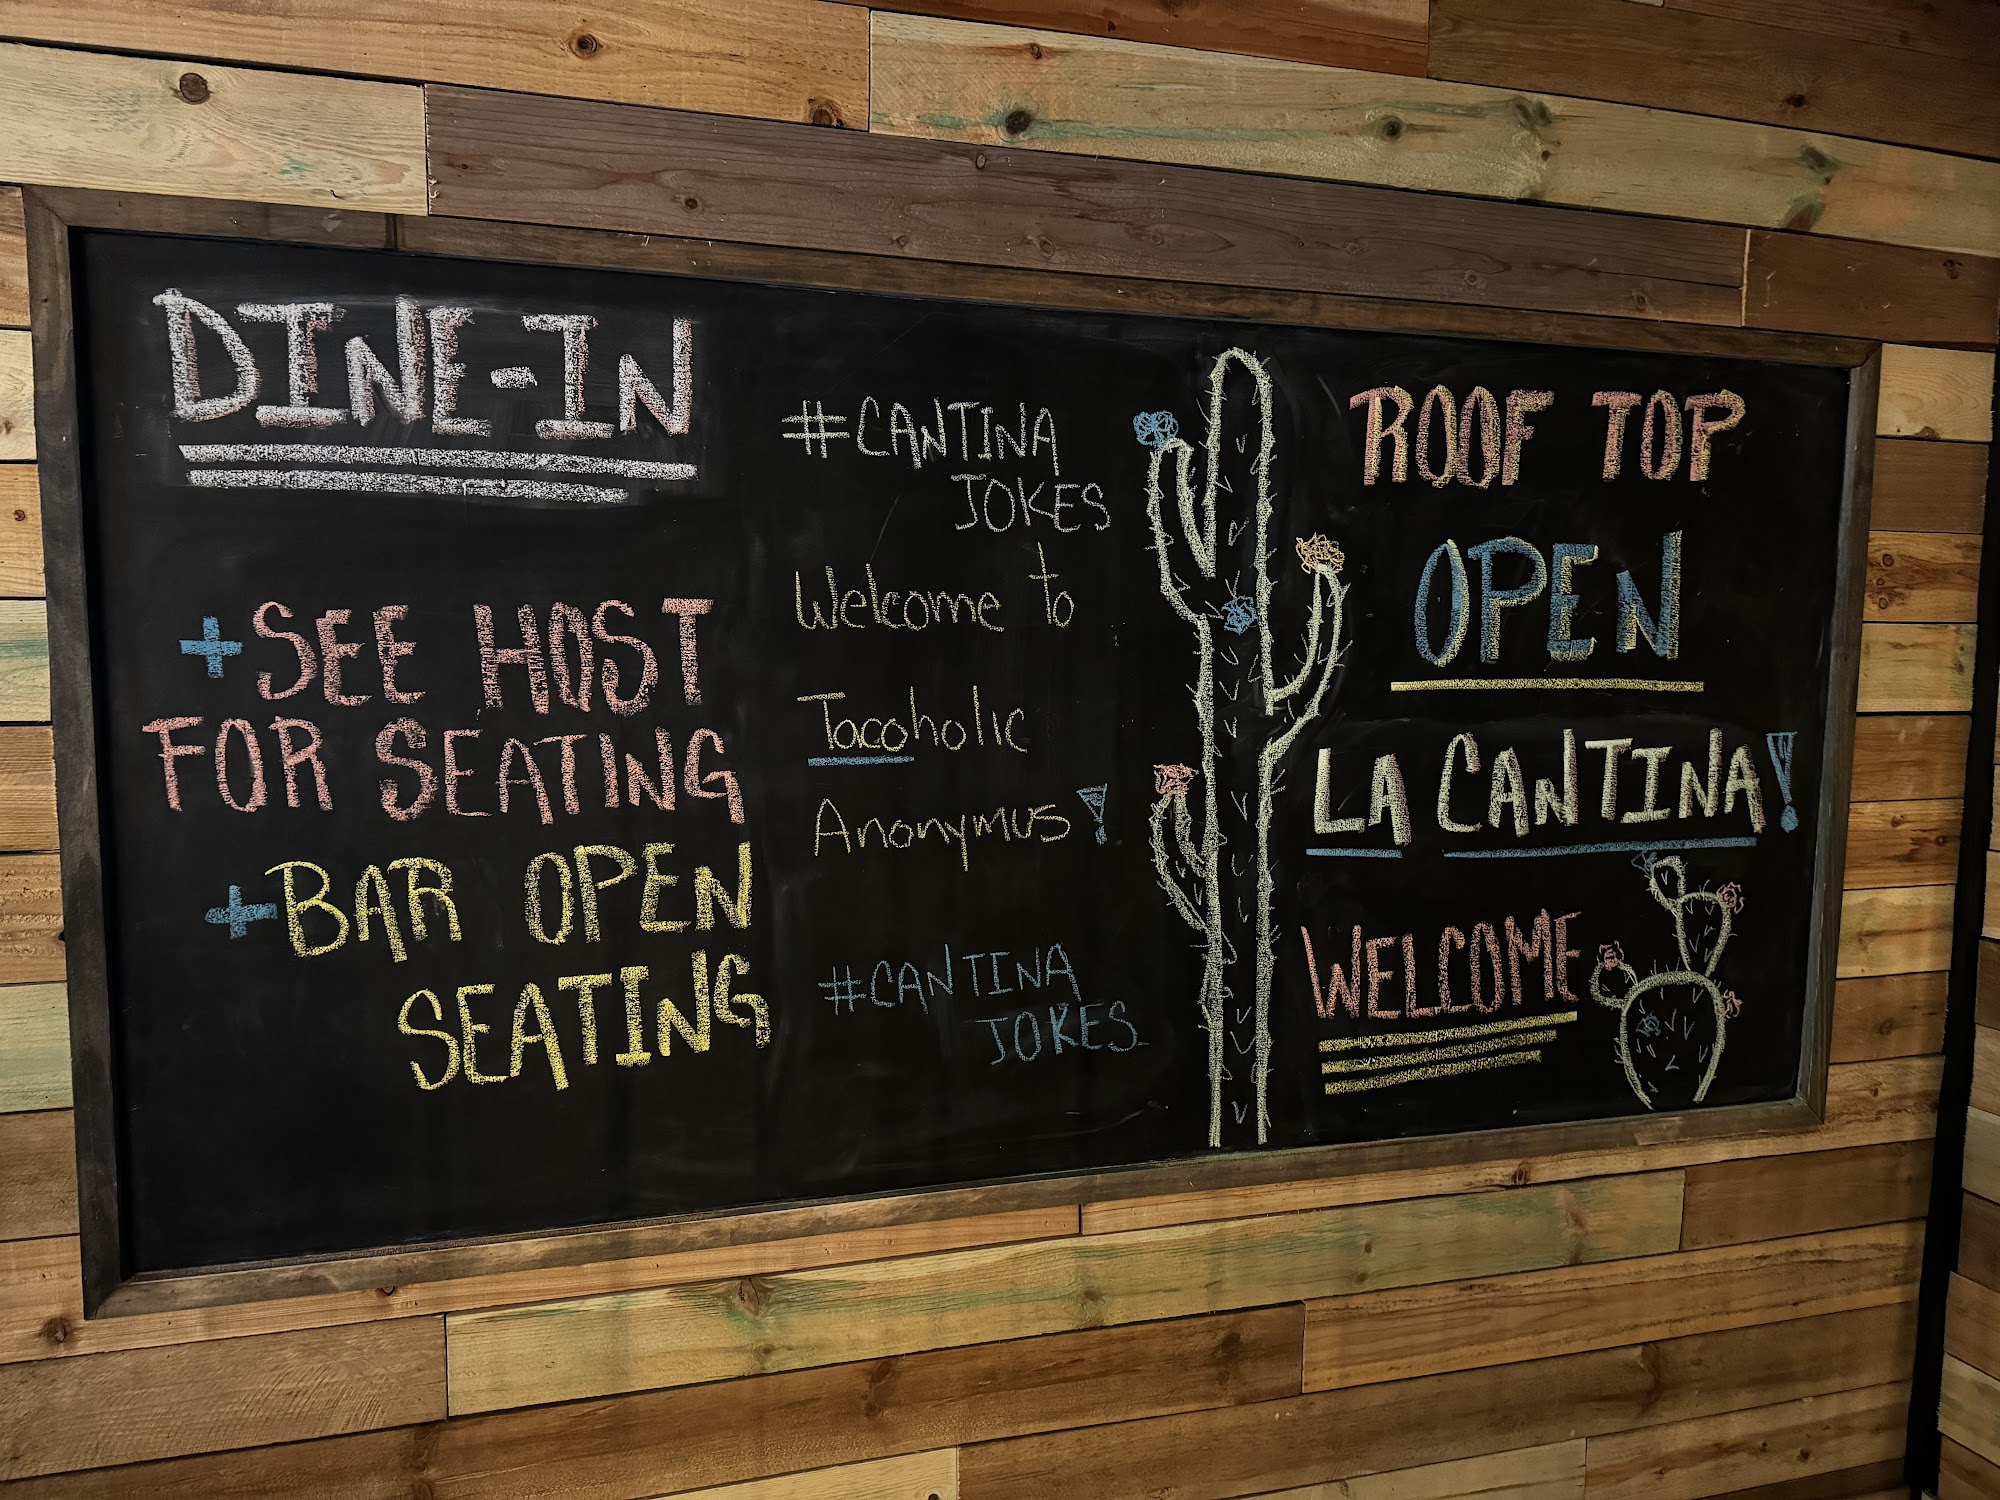 DINE-IN
+SEE HOST
FOR SEATING
+BAR OPEN
SEATING
#CANTINA
JOKES
Welcome to
Tacoholic
Anonymus!
#CANTINA
JOKES
ROOF TOP
OPEN
LA CANTINA!
WELCOME